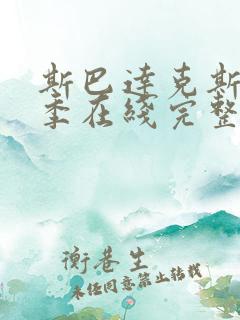 斯巴達克斯
季在綫完整
衡巷生
未经同意禁止转载